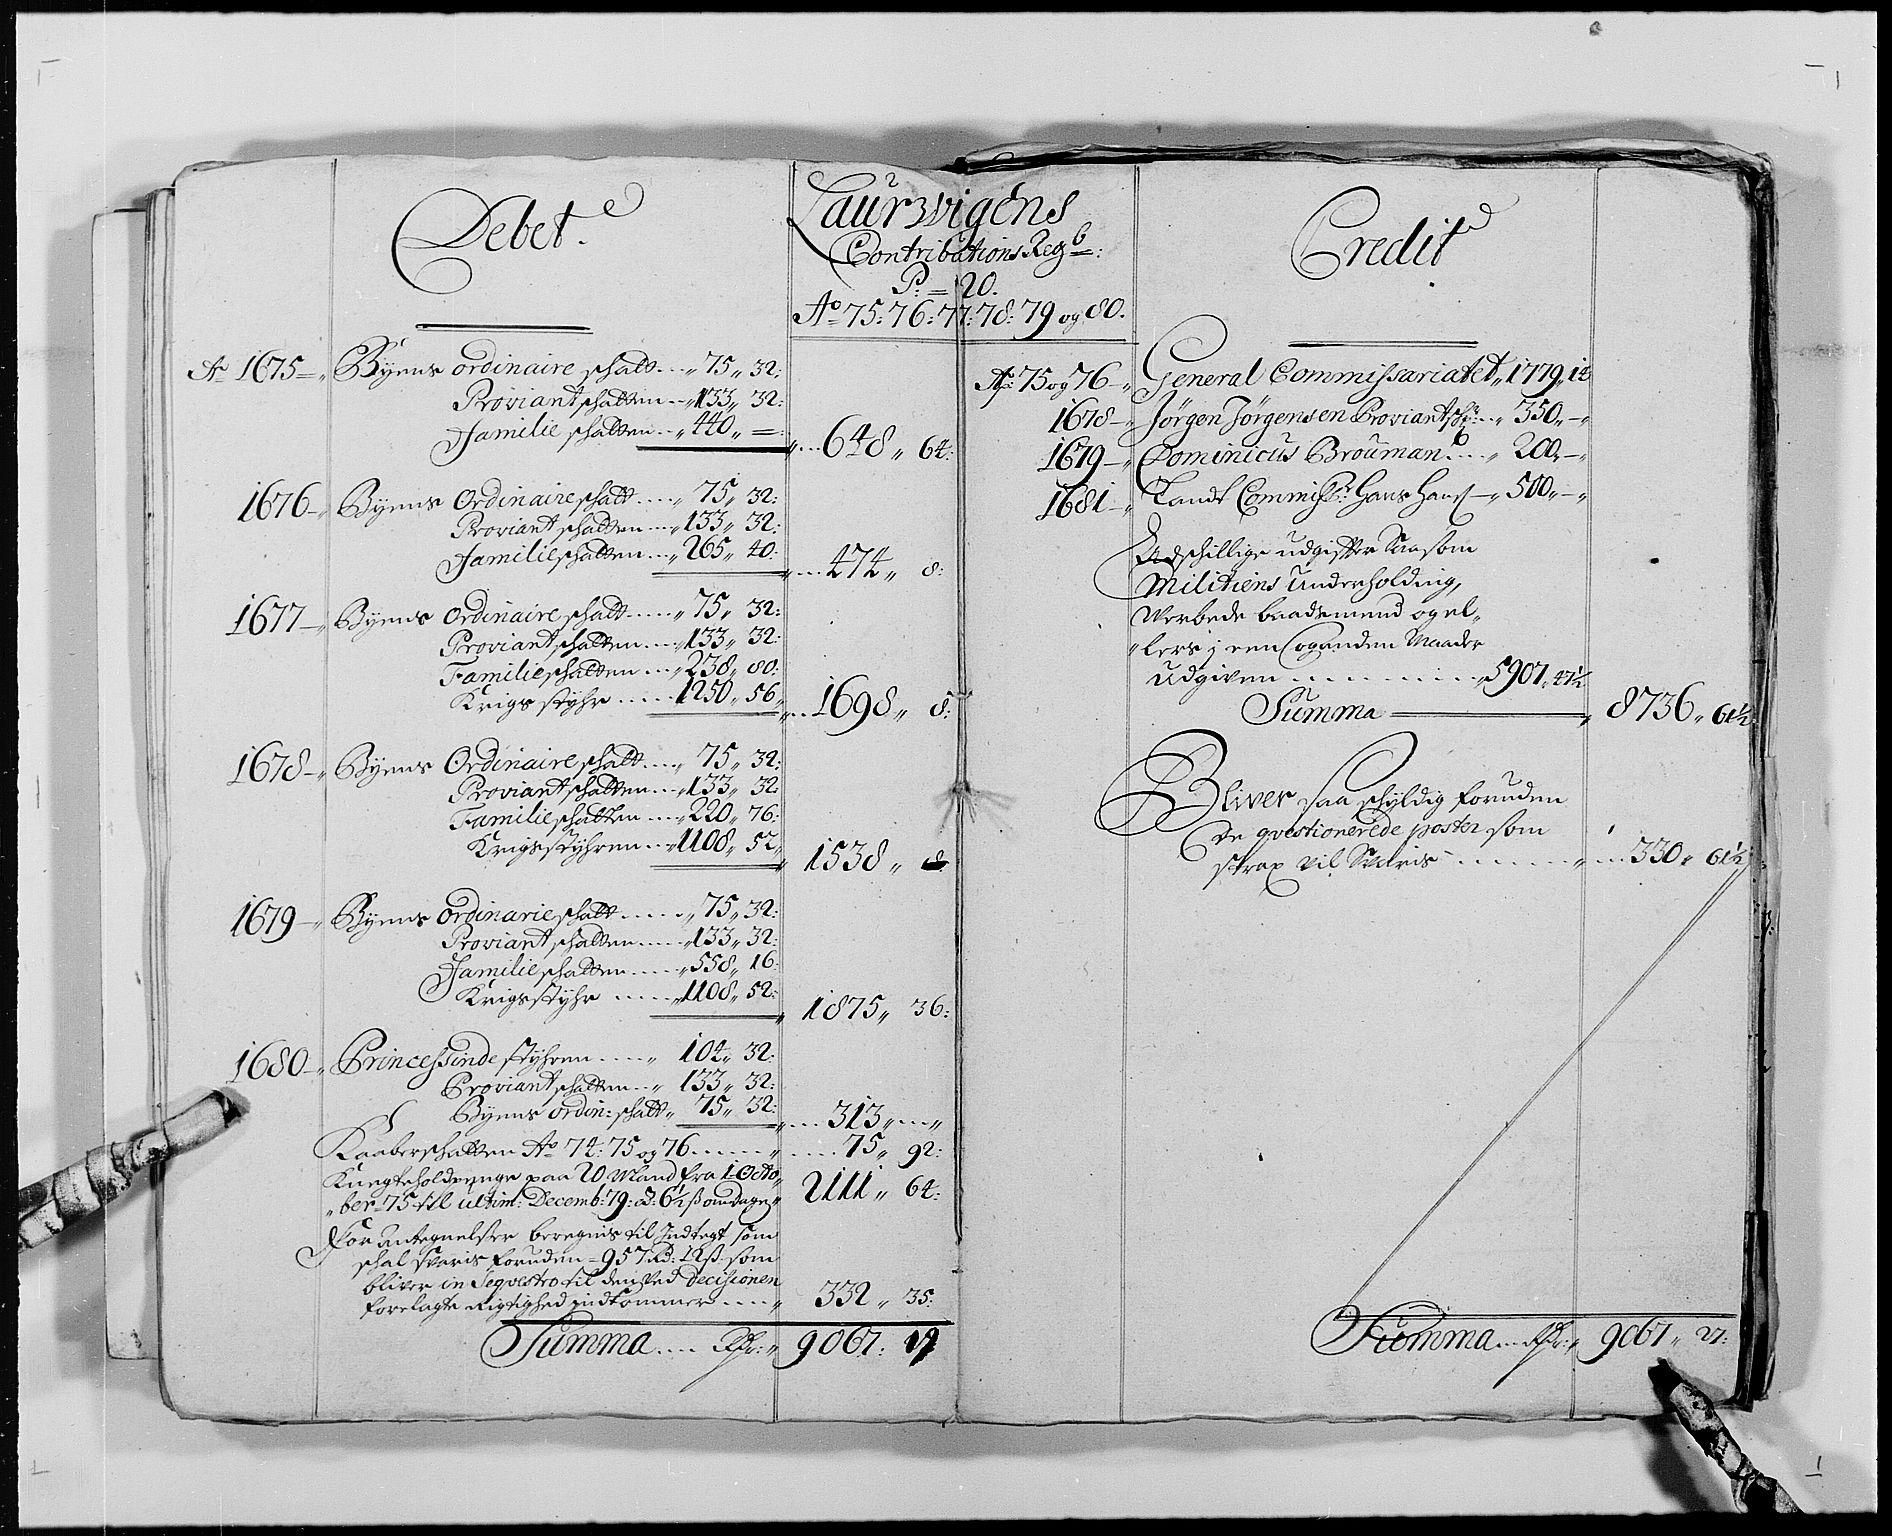 Debet.
Laurzvigens
Contributions Regb:
P: = 20.
Ao 75: 76: 77: 78: 79 og 80.
Credit
Ao 1675 Byens ordinaire schatt ... 75 „ 32:
Proviant schatten ... 133 „ 32:
Familie schatten ... 440 „ = : ... 648 „ 64:
1676 Byens Ordinaire schatt ... 75 „ 32:
Proviant schatten ... 133 „ 32:
Familie schatten ... 265 „ 40: ... 474 „ 8:
1677 Byens Ordinaire schatt ... 75 „ 32:
Proviant schatten ... 133 „ 32:
Familie schatten ... 238 „ 80:
Krigs styhr ... 1250 „ 56 „ ... 1698 „ 8:
1678 Byens Ordinaire schatt ... 75 „ 32:
Proviant schatten ... 133 „ 32
Familie schatten ... 220 „ 76:
Krigsstyhren ... 1108 „ 52 „ 1538 „
1679 Byens Ordinarie schatt ... 75 „ 32:
Proviant schatten ... 133 „ 32:
Familie schatten ... 558 „ 16:
Krigsstyhr ... 1108 „ 52: 1875 „ 36:
1680 Princessinde styhren ... 104 „ 32:
Proviant schatten ... 133 „ 32:
Byens ordin: schatt „ 75 „ 32: ... 313 „ — „
Kaaberschatten Ao 74: 75 og 76 ... 75 „ 92:
Knegteholdpenge paa 20 Mand fra 1 Octo„
„ber 75 til ultim: Decemb: 79: a: 6½ ß om dagen „ 2111 „ 64:
For antegnelser beregnis til Indtegt som
schal svaris foruden = 957 Rd: ß som
bliver in Seqvestro til den ved decisionen
forelagte Rigtighed indkommer ... „ 332 „ 35:
Summa ... Rdr: „ 9067: 27
Ao 75 og 76 General Commissariatet „ 1779 „ 14
1678 Jörgen Jörgensen Proviantschr: ... 350 „ —
1679 Dominicus Brouman ... 200 „ —
1681 Landt Commiss: Hans Hans 500 „ —
Udschillige udgifter Saasom
Militiens Underholding,
Verbede baadsmend og el„
„lers i een og anden Maader
Udgiven ... 5907 „ 47½
Summa 8736 „ 61½
Bliver saa schyldig foruden
De qvestionerede poster som
strax vil Svaris ... 330 „ 61½
Summa ... Rdr: „ 9067 „ 27: